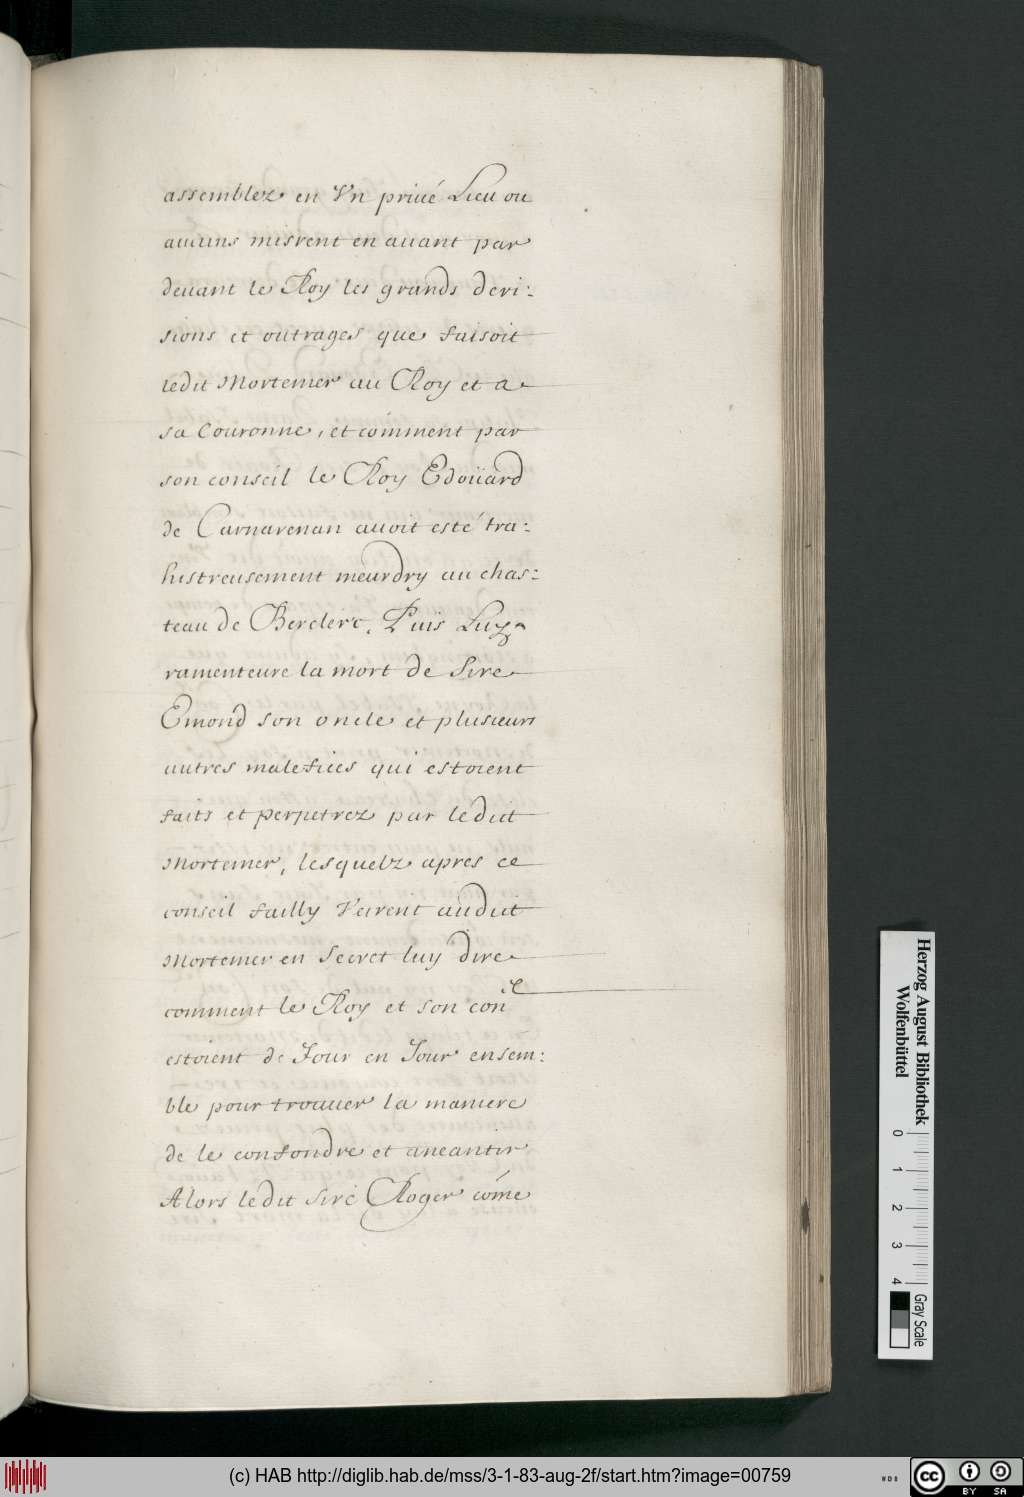 assemblez en Vn priué Lieu ou
aucuns misrent en auant par
deuant le Roy les grands deri:
sions et outrages que faisoit
ledit Mortemer au Roy et a
sa Couronne, et comment par
son conseil le Roy Edoüard
de Carnarenan auoit esté tra:
histreusement meurdry au chas:
teau de Berclerc, Puis Luy
ramenteure la mort de Sire
Emond son oncle et plusieurs
autres malefices qui estoient
faits et perpetrez par ledict
Mortemer, lesquelz apres ce
conseil failly Veirent audict
Mortemer en Secret luy dire
comment le Roy et son con^el
estoient de Jour en Jour ensem:
ble pour trouuer la maniere
de le confondre et aneantir
Alors ledit Sire Roger cõme
Herzog August Bibliothek
Wolfenbüttel
0 1 2 3 4
Gray Scale
(c) HAB http://diglib.hab.de/mss/3-1-83-aug-2f/start.htm?image=00759
WDB
cc BY SA